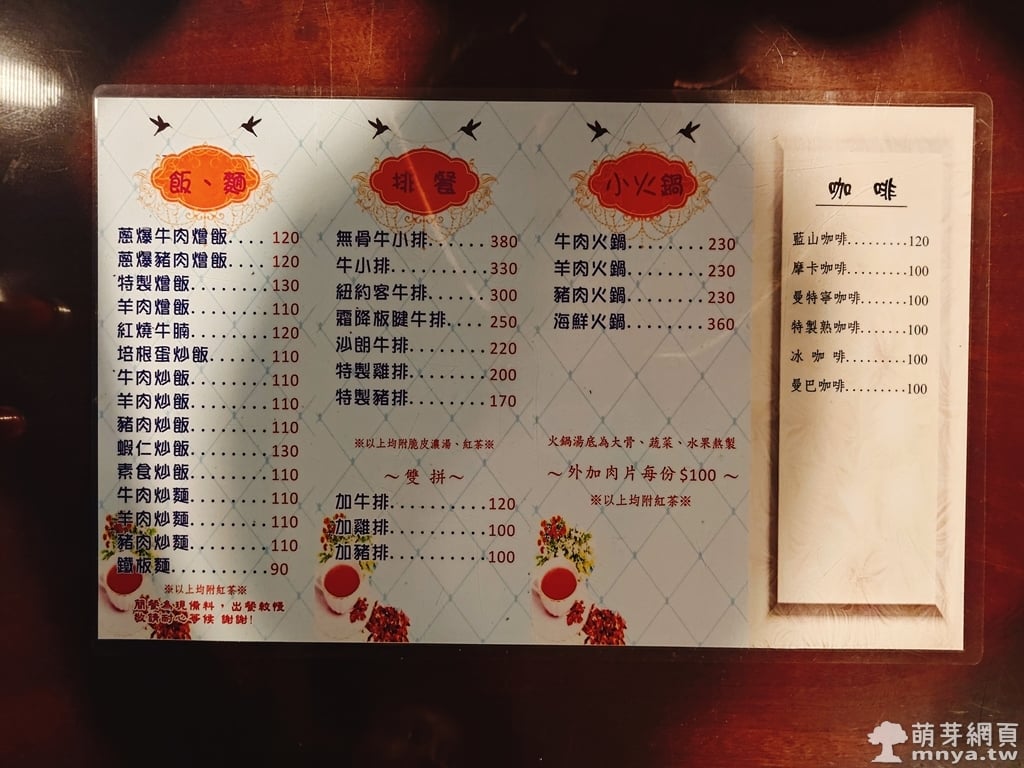 飯、麵
蔥爆牛肉燴飯.... 120
蔥爆豬肉燴飯.... 120
特製燴飯........ 130
羊肉燴飯........ 110
紅燒牛腩........ 120
培根蛋炒飯...... 110
牛肉炒飯........ 110
羊肉炒飯........ 110
豬肉炒飯........ 110
蝦仁炒飯........ 130
素食炒飯........ 110
牛肉炒麵........ 110
羊肉炒麵........ 110
豬肉炒麵........ 110
鐵板麵.......... 90
※以上均附紅茶※
簡餐為現備料，出餐較慢
敬請耐心等候 謝謝!
排 餐
無骨牛小排...... 380
牛小排.......... 330
紐約客牛排...... 300
霜降板腱牛排.... 250
沙朗牛排........ 220
特製雞排........ 200
特製豬排........ 170
※以上均附脆皮濃湯、紅茶※
～雙 拼～
加牛排.......... 120
加雞排.......... 100
加豬排.......... 100
小火鍋
牛肉火鍋........ 230
羊肉火鍋........ 230
豬肉火鍋........ 230
海鮮火鍋........ 360
火鍋湯底為大骨、蔬菜、水果熬製
～外加肉片每份$100～
※以上均附紅茶※
咖 啡
藍山咖啡.........120
摩卡咖啡.........100
曼特寧咖啡.......100
特製熱咖啡.......100
冰 咖 啡.........100
曼巴咖啡.........100
萌芽網頁
mnya.tw